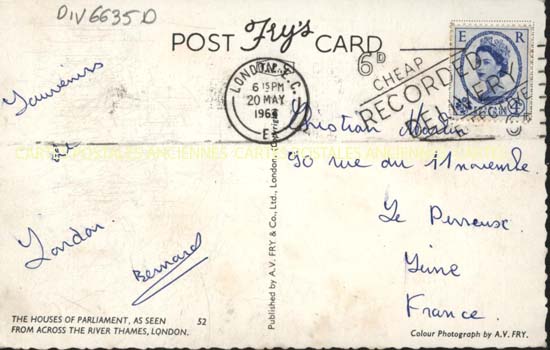 DIV6635D
POST Fry's CARD
E R
LONDON E.C.
6 15 PM
20 MAY
1964
E
6D
CHEAP
RECORDED
DELIVERY
Souvenirs
Christian
90 rue du 11 novembre.
Le Perreux.
Seine
France.
London.
Bernard
CARTES POSTALES ANCIENNES CARTES POSTALES ANCIENNES
Published by A.V. FRY & Co., Ltd., London. (Copyright)
THE HOUSES OF PARLIAMENT, AS SEEN 52
FROM ACROSS THE RIVER THAMES, LONDON.
Colour Photograph by A.V. FRY.